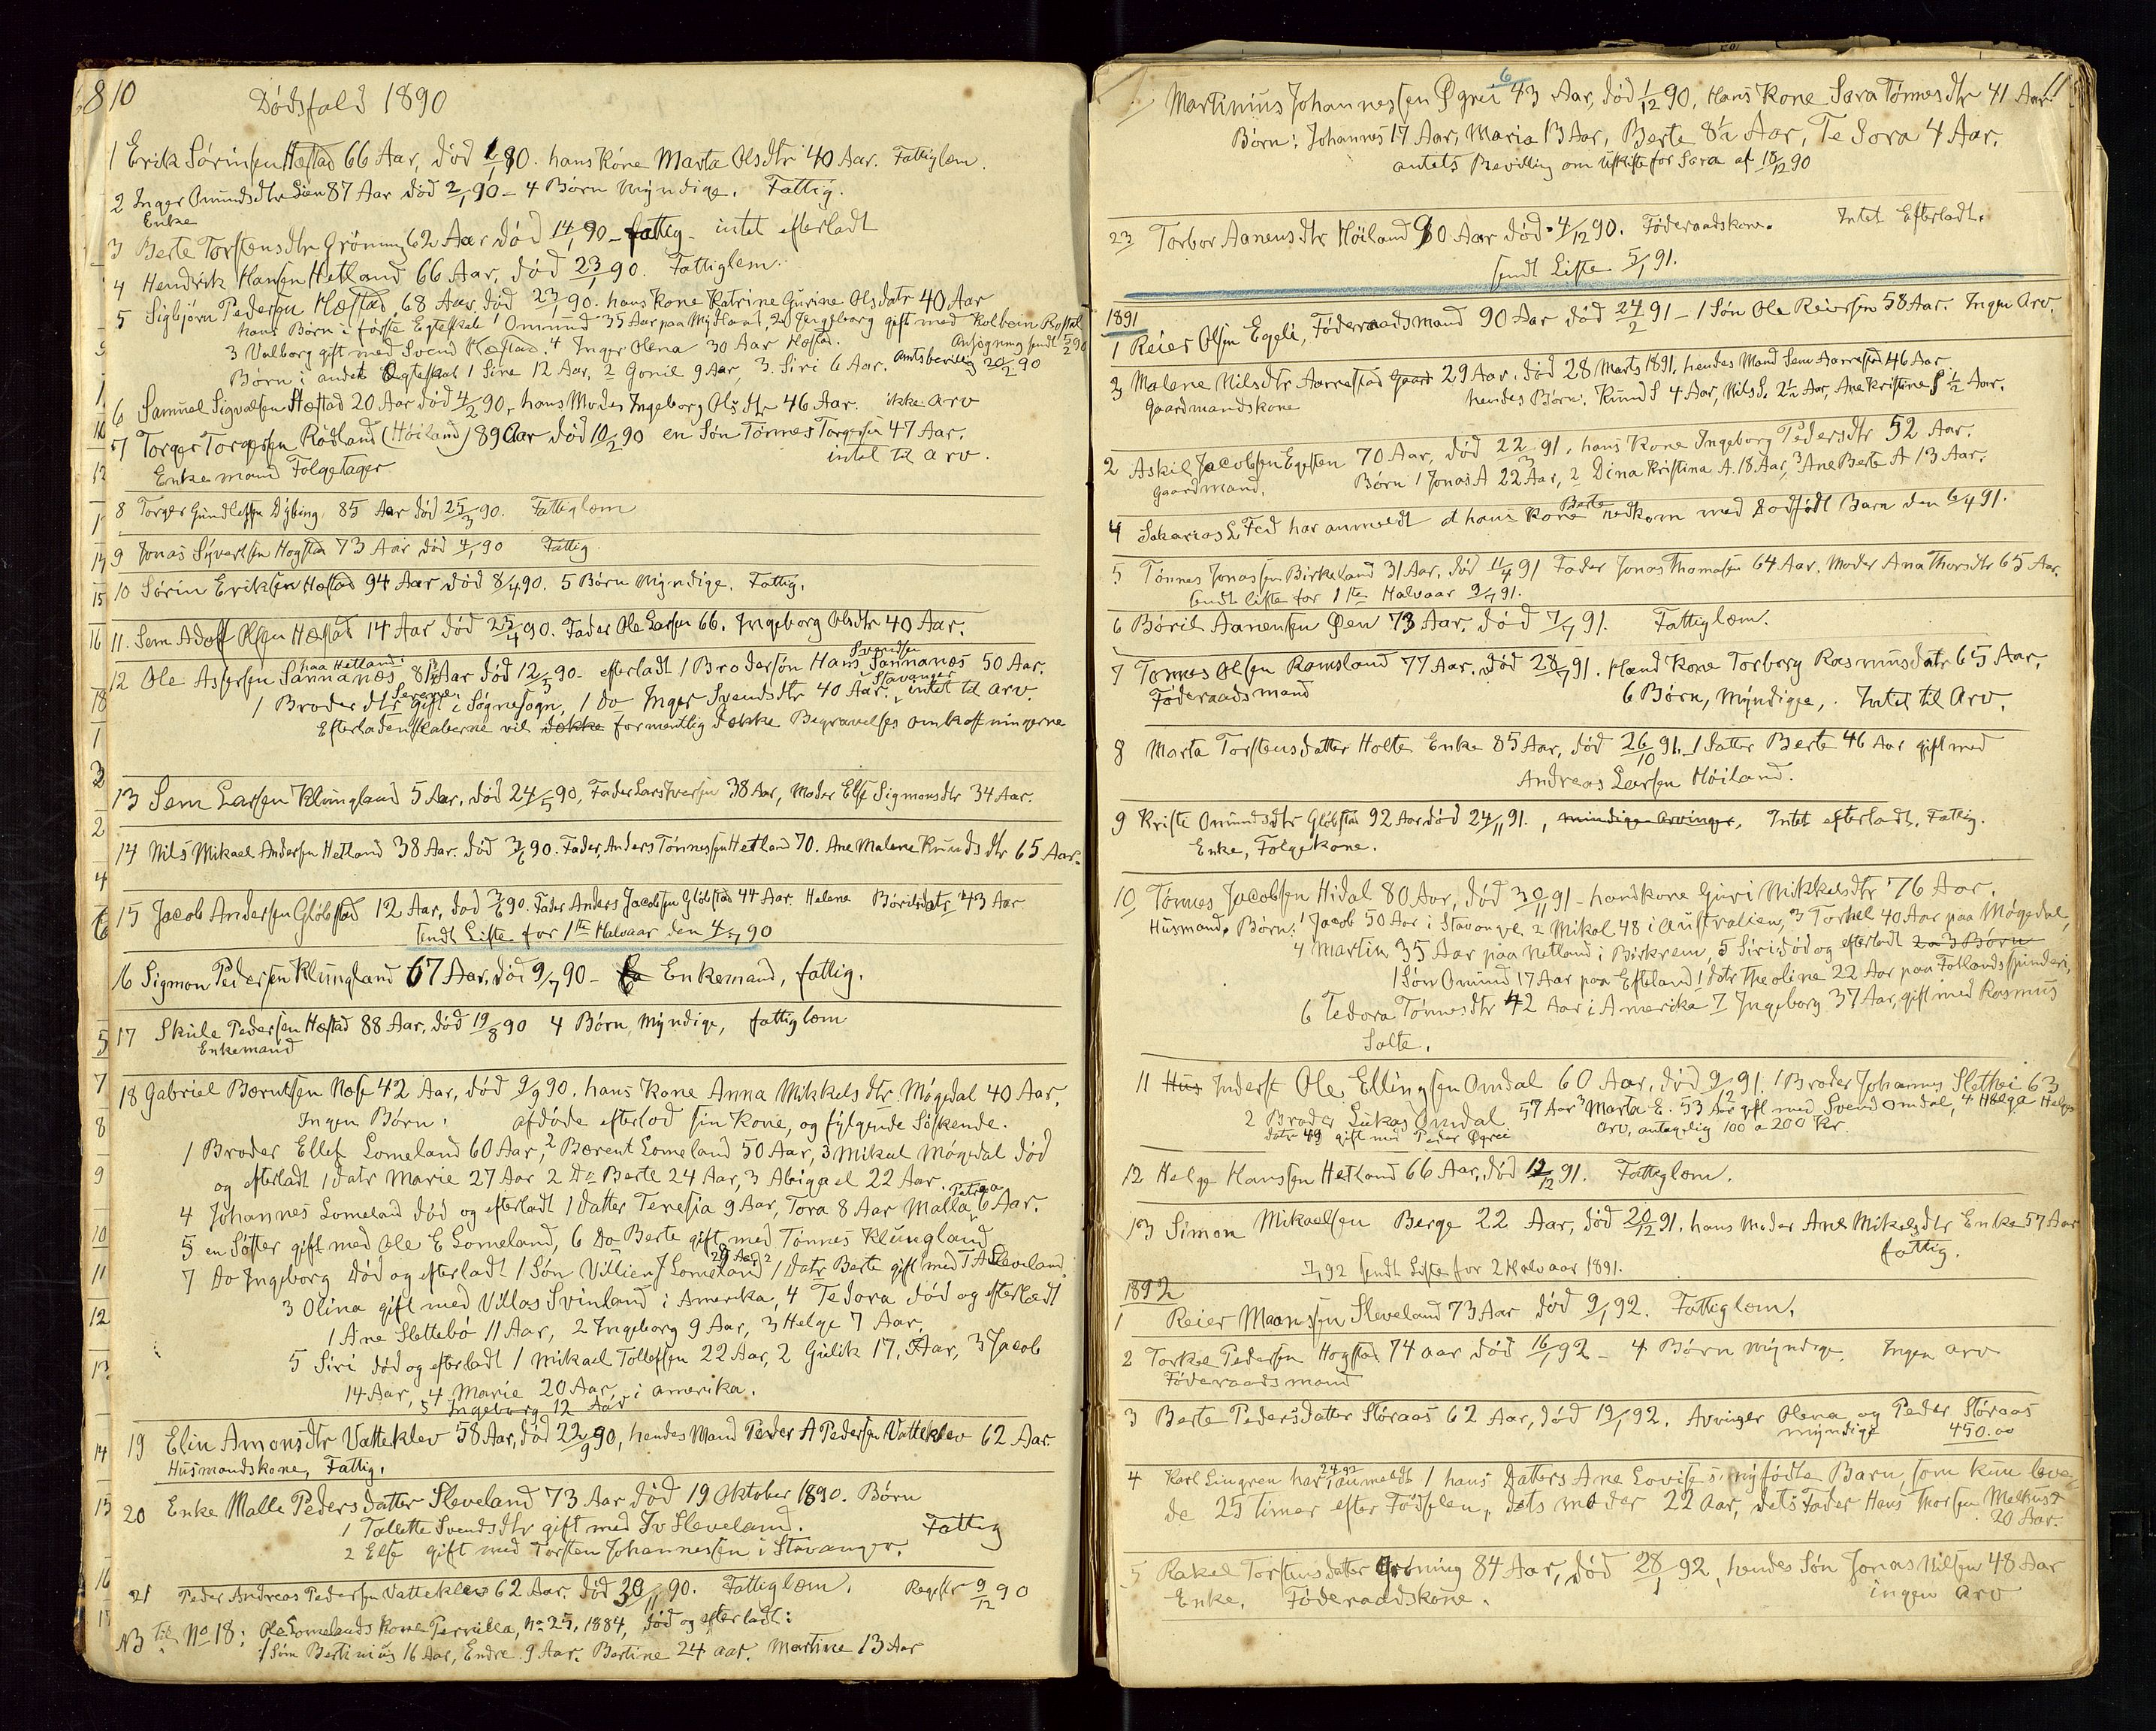 10
Dödsfald 1890
1 Erik Sörinsen Hæstad 66 Aar, död 90. hans Kone Marta Olsdtr 40 Aar. Fattiglem.
2 Inger Omundsdtr Lien 87 Aar död 2/1 90 - 4 Börn Myndige. Fattig.
Enke
3 Berte Torstensdtr Gröning 62 Aar död 14/1 90 - fattig - intet efterladt
4 Hendrik Hansen Hetland 66 Aar, död 23/1 90. Fattiglem.
5 Sigbjörn Pedersen Hæstad, 68 Aar död 23/1 90. hans Kone Katrine Gurine Olsdatr 40 Aar
hans Börn i förste Egteskab 1 Omund 35 Aar paa Mydland, 2 Ingeborg gift med Kolbein
3 Valborg gift med Svend Hæstad. 4 Inger Olena 30 Aar Hæstad. Ansögning sendt 5/2 90
Börn i andet Egteskab 1 Sine 12 Aar, 2 Gonil 9 Aar, 3. Siri 6 Aar. Amtsbevilg 20/2 90
6 Samuel Sigvalsen Hæstad 20 Aar död 4/2 90, hans Moder Ingeborg Olsdtr 46 Aar. ikke arv
7 Torger Torgersen Rödland (Höiland) 89 Aar död 10/2 90 en Sön Tönnes Torgersen 47 Aar.
Enkemand Folgetager intet til arv.
8 Torger Gundlefsen Dybing 85 Aar död 25/3 90. Fattiglem
9 Jonas Syvertsen Hogstad 73 Aar död 4/4 90 Fattig
10 Sörin Eriksen Hæstad 94 Aar död 8/4 90. 5 Börn Myndige. Fattig.
11. Sem Adolf Olsen Hæstad 14 Aar död 25/4 90. Fader Ole Larsen 66. Ingeborg Olsdtr 40 Aar.
paa Hetland. Svendsen
12 Ole Assersen Sannanæs 81 Aar död 12/5 90 - efterladt 1 Brodersön Hans Sannanæs 50 Aar.
Severine i Stavanger
1 Broder dtr gift i Søgnesogn, 1 do Inger Svendsdtr 40 Aar. intet til arv.
Efterladenskaberne vil dække formentlig dække Begravelses omkostningerne
13 Sem Larsen Klungland 5 Aar, död 24/5 90, Fader Lars Iversen 38 Aar, Moder Else Sigmonsdtr 34 Aar.
14 Nils Mikael Andersen Hetland 38 Aar. död 3/6 90. Fader, Anders Tönnessen Hetland 70. Ane Malene Knudsdtr 65 Aar.
15 Jacob Andersen Glöbstad 12 Aar, död 90. Fader Anders Jacobsen Glöbstad 44 Aar. Helene Börildsdatr 43 Aar
sendt Liste for 1ste Halvaar den 4/7 90
16 Sigmon Pedersen Klungland 67 Aar, död 9/7 90 - Enkemand, fattig.
17 Skule Pedersen Hæstad 88 Aar, död 19/8 90 4 Börn, Myndige, fattiglem
Enkemand
18 Gabriel Bærntsen Næse 42 Aar, död 9/9 90, hans Kone Anna Mikkelsdtr. Mögedal 40 Aar.
Ingen Börn. afdöde efterlod sin Kone, og fylgende Söskende.
1 Broder Ellef Lomeland 60 Aar, 2 Bærent Lomeland 50 Aar, 3 Mikal Mögedal död
og efterladt 1 datr Marie 27 Aar 2 Do Berte 24 Aar, 3 Abigael 22 Aar.
4 Johannes Lomeland död og efterladt 1 datter Teresia 9 Aar, Tora 8 Aar Malla Petrea 6 Aar.
5 en Söster gift med Ole E Lomeland, 6 Do Berte gift med Tönnes Klungland
7 Do Ingeborg död og efterladt 1 Sön Villien J Lomeland 29 Aar, 2 1 datr Berte gift med T A Sleveland.
3 Olina gift med Villas Svinland i Amerika, 4 Tedora död og efterladt
1 Ane Slettebö 11 Aar, 2 Ingeborg 9 Aar, 3 Helge 7 Aar,
5 Siri död og efterladt 1 Mikael Tollefsen 22 Aar, 2 Gulik 17, Aar, 3 Jacob
14 Aar, 4 Marie 20 Aar, i amerika.
5 Ingeborg 12 Aar
19 Elin Amonsdtr Vatteklev 58 Aar, död 22/9 90, hendes Mand Peder A Pedersen Vatteklev 62 Aar.
Husmandskone, Fattig.
20 Enke Malle Pedersdatter Sleveland 73 Aar död 19 Oktober 1890. Börn
1 Tollette Svendsdtr gift med Iv Sleveland. Fattig
2 Else gift med Torsten Johannessen i Stavanger.
21 Peder Andreas Pedersen Vatteklev 62 Aar. död 30/11 90. Fattiglem. Registr 9/12 90
NB til No 18: Ole Lomelands Kone Pernilla, No 25, 1884, död og efterladt:
1 Sön Bertinius 16 Aar, Endre 9 Aar. Bertine 24 aar. Martine 13 Aar
11
Martinius Johannessen Øgrei 43 Aar, död 1/12 90, Hans Kone Sara Tönnesdtr 41 Aar.
Börn: Johannes 17 Aar, Maria 13 Aar, Berte 8½ Aar, Tedora 4 Aar.
amtets Bevilling om Uskifte for Sara af 18/12 90
23 Torbor Aanensdtr Höiland 90 Aar död 4/12 90. Föderaadskone. Intet Efterladt.
sendt Liste 5/1 91.
1891
1 Reier Olsen Egeli, Föderaadsmand 90 Aar död 24/2 91 - 1 Sön Ole Reiersen 58 Aar. Ingen Arv.
3 Malene Nilsdtr Aarrestad Gaard 29 Aar, död 28 Marts 1891. hendes Mand Sem Aarrestad 46 Aar
Gaardmandskone hendes Börn. Knud S 4 Aar, Nils S. 2½ Aar, Ane Kristine S ½ Aar.
2 Askil Jacobsen Egesten 70 Aar, död 22/3 91. hans Kone Ingeborg Pedersdtr 52 Aar.
Gaardmand. Börn 1 Jonas A 22 Aar, 2 Dina Kristina A. 18 Aar, 3 Ane Berte A 13 Aar.
4 Sakarias L Fed har anmeldt at hans Kone Berte nedkom med dödfödt Barn den 6/4 91.
5 Tönnes Jonassen Birkeland 31 Aar, död 11/4 91 Fader Jonas Thomasen 64 Aar, Moder Ana Thorsdtr 65 Aar.
sendt liste for 1ste Halvaar 9/7 91.
6 Böril Aanensen Øen 73 Aar. död 7/7 91. Fattiglem.
7 Tönnes Olsen Ramsland 77 Aar. död 28/7 91. Hand Kone Torborg Rasmusdatr 65 Aar.
Föderaadsmand 6 Börn, Myndige, . Intet til Arv.
8 Marta Torstensdatter Holte Enke 85 Aar, död 26/10 91. 1 datter Berte 46 Aar gift med
Andreas Larsen Höiland.
9 Kriste Omundsdtr Glöbstad 92 Aar död 24/11 91. , mindige arvinger. Intet efterladt. Fattig.
Enke, Folgekone.
10 Tönnes Jacobsen Hidal 80 Aar, död 30/11 91 - hand kone Guri Mikkelsdtr 76 Aar.
Husmand. Börn: 1 Jacob 50 Aar i Stavanger 2 Mikal 48 i Australien, 3 Torkel 40 Aar paa Mögedal,
4 Martin 35 Aar paa Netland i Birkrem, 5 Siri död og efterladt 2 a 3 Börn
1 Sön Omund 17 Aar paa Efteland 1 datr Theoline 22 Aar paa Fotlands Spinderi,
6 Tedora Tönnesdtr 42 Aar i Amerika 7 Ingeborg 37 Aar, gift med Rasmus
Salte.
11 Hus Inderst Ole Ellingsen Omdal 60 Aar, död 9/12 91. 1 Broder Johannes Slethei 63
2 Broder Lukas Omdal 57 Aar 3 Marta E. 53 Aar gift med Svend Omdal, 4 Helga
datr 49 gift med Peder Øgrei Arv, antagelig 100 a 200 Kr.
12 Helge Hanssen Hetland 66 Aar, död 12/12 91. Fattiglem.
13 Simon Mikaelsen Berge 22 Aar, död 20/12 91. hans Moder Ane Mikelsdtr Enke 57 Aar
fattig.
7/1 92 sendt Liste for 2 Halvaar 1891.
1892
1 Reier Maansen Sleveland 73 Aar död 9/1 92. Fattiglem.
2 Torkel Pedersen Hogstad 74 aar död 16/1 92 - 4 Börn Myndige. Ingen arv
Föderaadsmand
3 Berte Pedersdatter Storaas 62 Aar, död 19/1 92. Arvinger Olena og Peder Storaas
myndige 450.00
4 Karl Lingren har 24/1 92 anmeldt 1 hans Datters Ane Lovise's nyfödte Barn, som kun leve
de 25 timer efter Födselen, dets moder 22 aar, dets Fader Hans Thorsen Melhus
20 Aar.
5 Rakel Torstensdatter Gröning 84 Aar, död 28/1 92, hendes Sön Jonas Nilsen 48 Aar
Enke. Föderaadskone. ingen arv